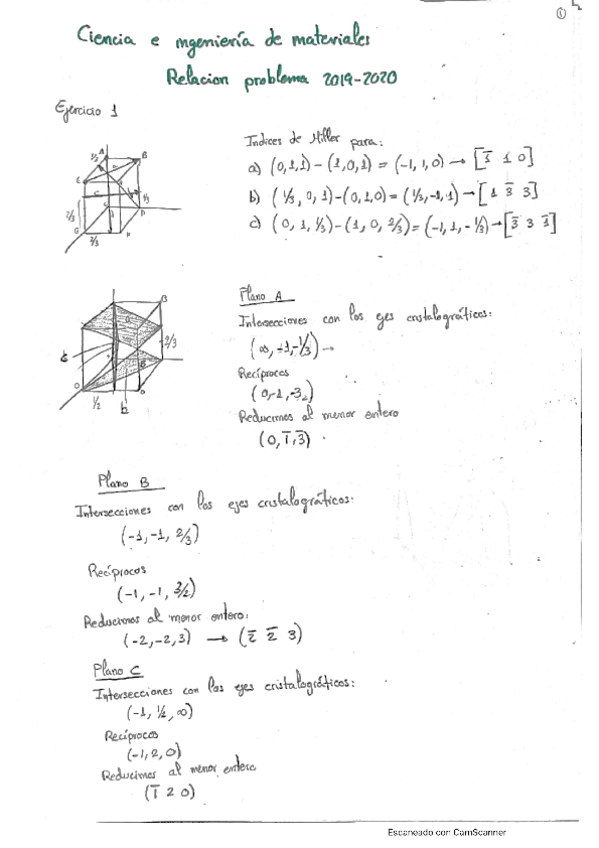 Ciencia e ingeniería de materiales
Relacion problema 2019-2020
Ejercicio 1
Indices de Miller para:
a) (0,1,1)-(1,0,1) = (-1,1,0) → [1̅ 1 0]
b) (1/3, 0, 1)-(0,1,0) = (1/3,-1,1) → [1 3̅ 3]
c) (0, 1, 1/3)-(1, 0, 2/3) = (-1, 1, -1/3) → [3̅ 3 1̅]
Plano A
Intersecciones con los ejes cristalográficos:
(∞, -1, -1/3)
Recíprocos
(0,-1,-3)
Reducimos al menor entero
(0, 1̅, 3̅)
Plano B
Intersecciones con los ejes cristalográficos:
(-1, -1, 2/3)
Recíprocos
(-1, -1, 3/2)
Reducimos al menor entero:
(-2,-2,3) → (2̅ 2̅ 3)
Plano C
Intersecciones con los ejes cristalográficos:
(-1, 1/2, ∞)
Recíprocos
(-1, 2, 0)
Reducimos al menor entero
(1̅ 2 0)
Escaneado con CamScanner